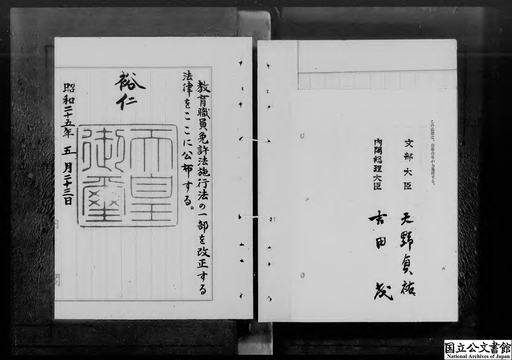 教育職員免許法施行法の一部を改正する
法律をここに公布する。
裕仁
天皇
御璽
昭和二十五年 五月二十三日
文部大臣 天野貞祐
内閣総理大臣 吉田茂
国立公文書館
National Archives of Japan